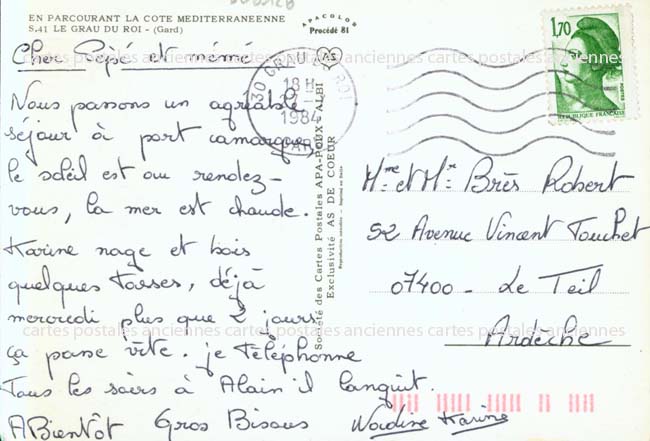 EN PARCOURANT LA COTE MEDITERRANEENNE
S.41 LE GRAU DU ROI - (Gard)
APACOLOR
Procédé 81
AS
Cher Pépé et mémé
Nous passons un agréable
séjour à port camargue,
le soleil est au rendez-
vous, la mer est chaude.
Karine nage et bois
quelques tasses, déjà
mercredi plus que 2 jours
ça passe vite. je téléphonne
Tous les soirs à Alain il languit.
A Bientôt Gros Bisous Nordine Karine
Société des Cartes Postales APA-POUX - ALBI
Exclusivité AS DE COEUR
Reproduction interdite - Imprimé en Italie
30 GRAU DU ROI
18 H
1984
GARD
1,70
POSTES
REPUBLIQUE FRANÇAISE
Mme et Mr Brès Robert
52 Avenue Vincent Touchet
07400 - Le Teil
Ardèche
cartes postales anciennes cartes postales anciennes cartes postales anciennes
cartes postales anciennes cartes postales anciennes cartes postales anciennes